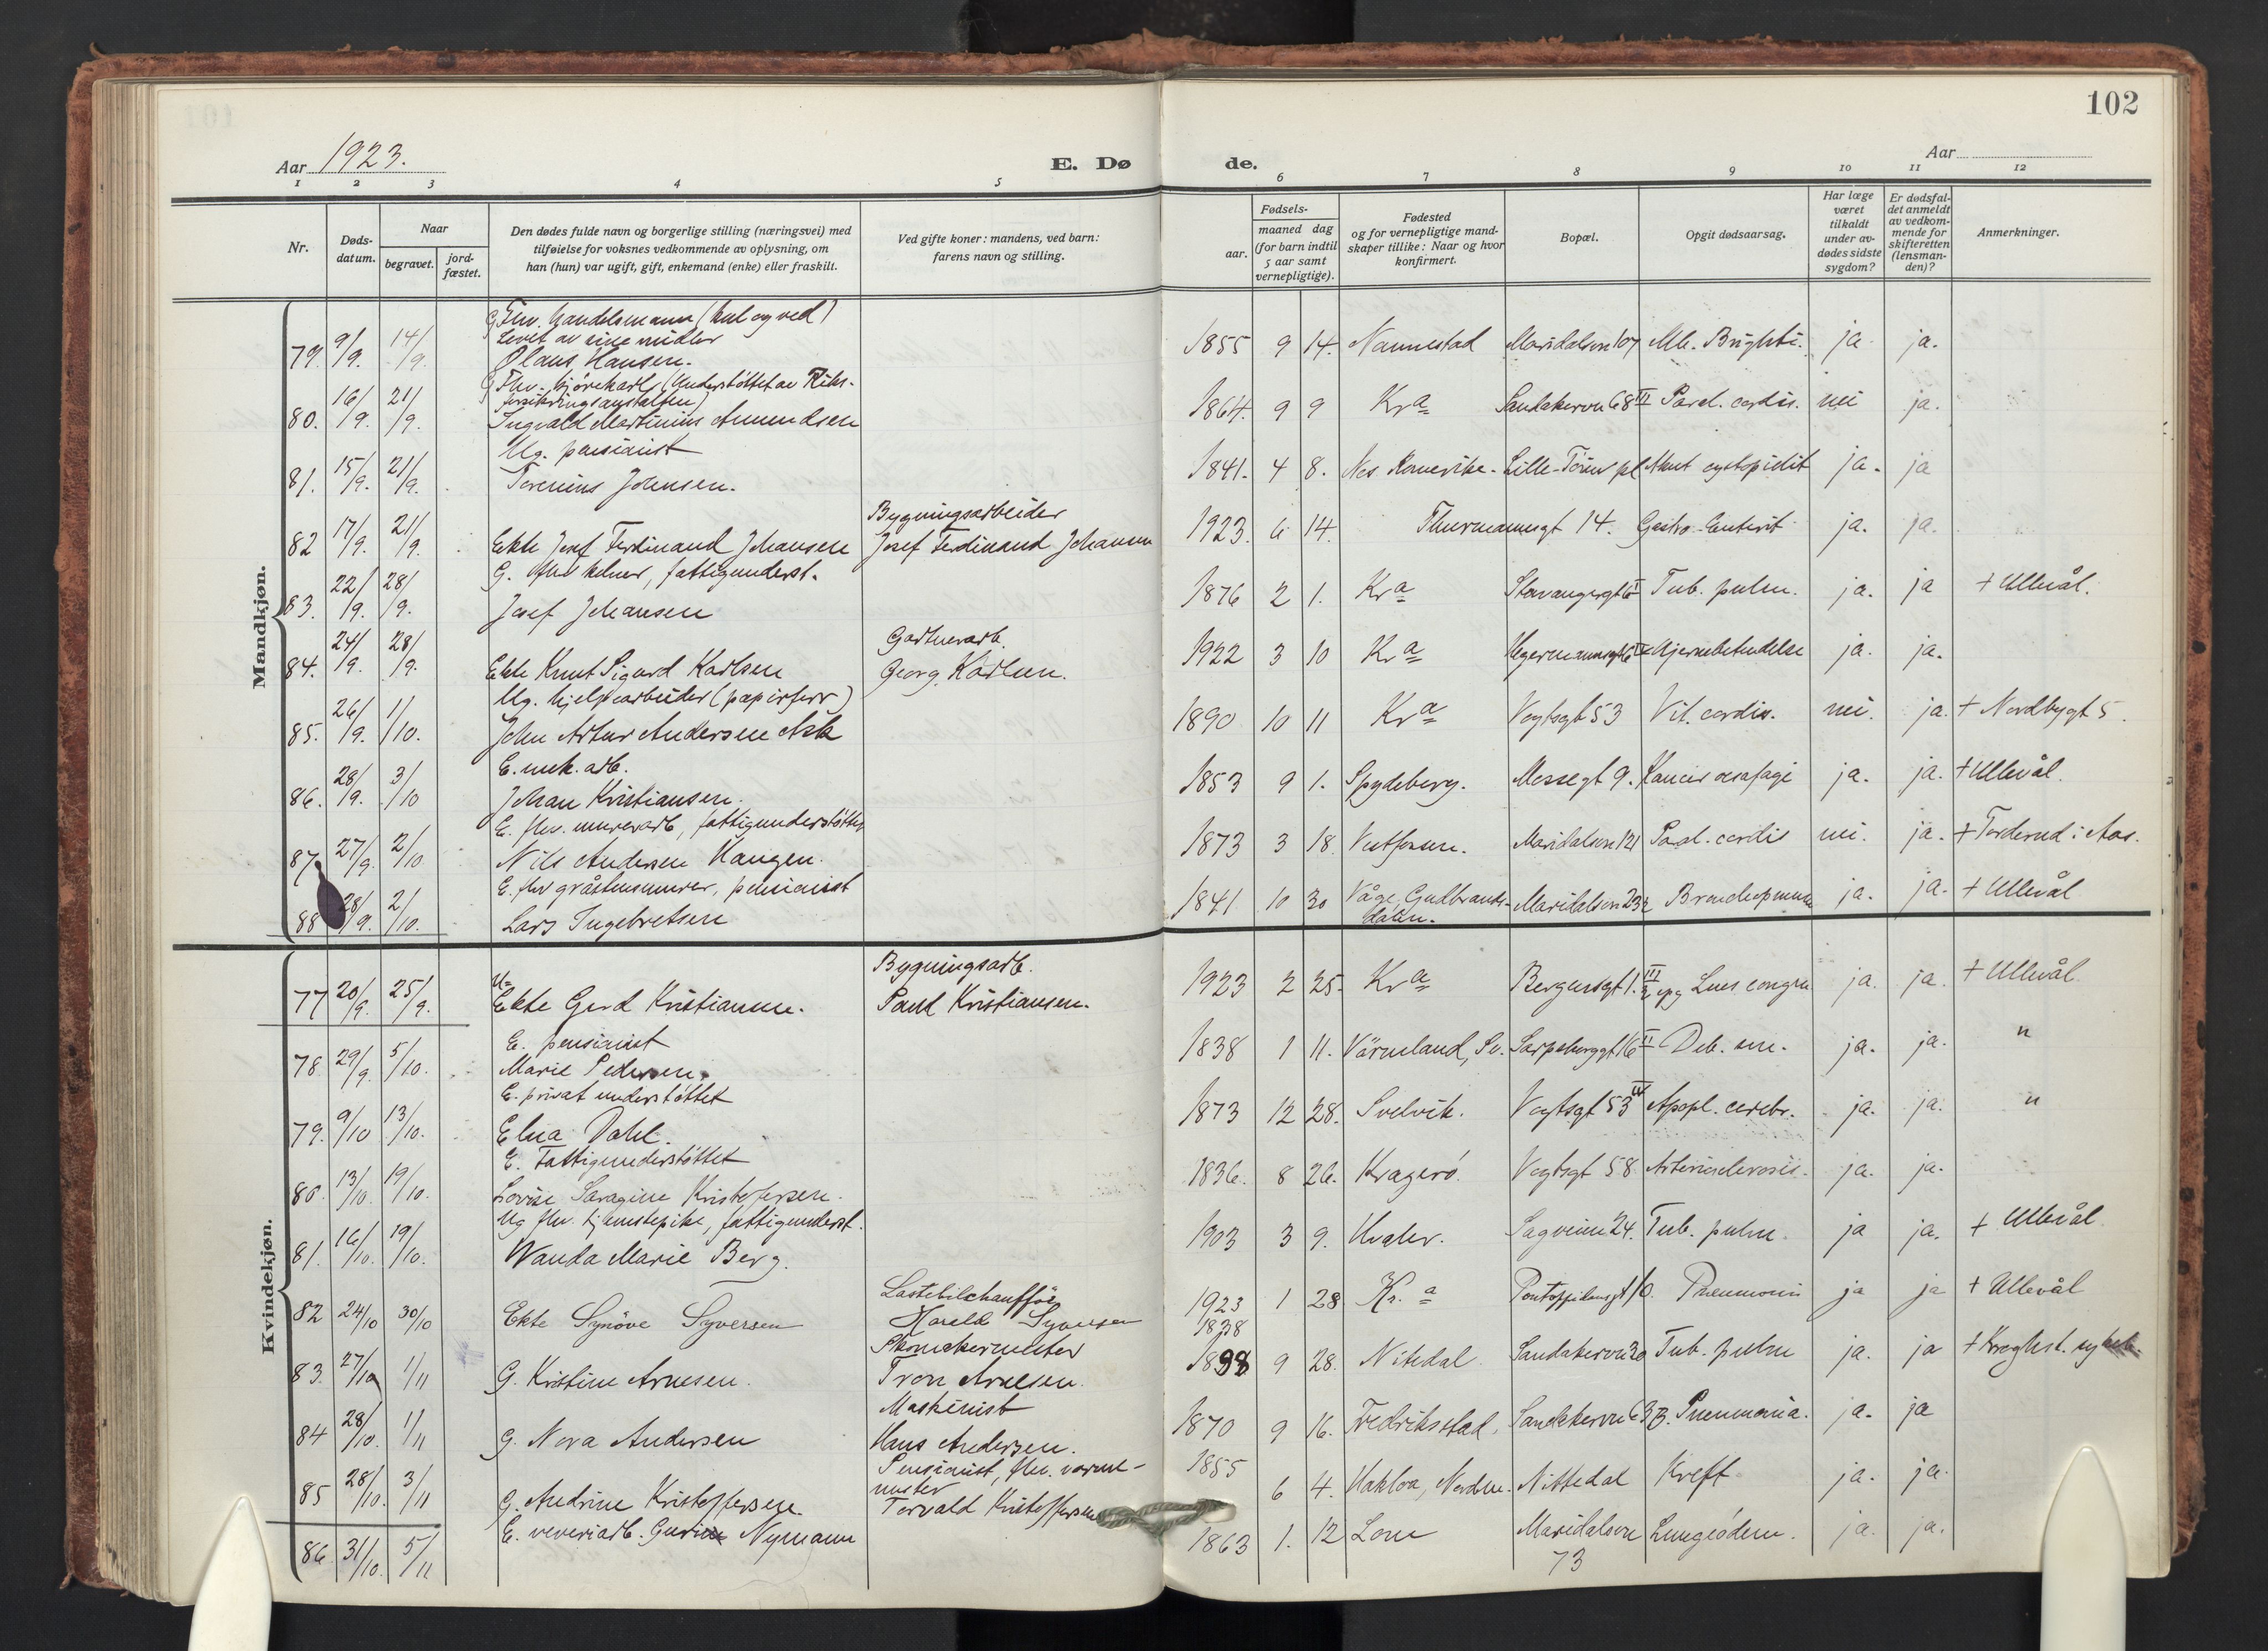 102
Aar 1923.
E. Dø
de.
Aar
1 2 3 4 5 6 7 8 9 10 11 12
Nr.
Døds-
datum.
Naar
begravet.
jord-
fæstet.
Den dødes fulde navn og borgerlige stilling (næringsvei) med
tilføielse for voksnes vedkommende av oplysning, om
han (hun) var ugift, gift, enkemand (enke) eller fraskilt.
Ved gifte koner: mandens, ved barn:
farens navn og stilling.
Fødsels-
aar.
maaned dag
(for barn indtil
5 aar samt
vernepligtige).
Fødested
og for vernepligtige mand-
skaper tillike: Naar og hvor
konfirmert.
Bopæl.
Opgit dødsaarsag.
Har læge
været
tilkaldt
under av-
dødes sidste
sygdom?
Er dødsfal-
det anmeldt
av vedkom-
mende for
skifteretten
(lensman-
den)?
Anmerkninger.
Mandkjøn.
G Fhv. handelsmann (kul og ved)
Levet av sine midler
79. 9/9. 14/9. Olaus Hansen. 1855 9 14. Nannestad Maridalsvn 107 Mb. Brighti. ja. ja.
G Fhv. kjørekarl (Understøttet av Riks-
forsikringsanstalten)
80. 16/9. 21/9. Ingvald Martinius Amundsen 1864. 9 9 Kra Sandakervn 68 III Paral. cordis. nei ja.
Ug. pensionist
81. 15/9. 21/9. Torenius Johnsen. 1841. 4 8. Nes Romerike. Lille-Töien pl. Akut ja. ja
Bygningsarbeider
82 17/9. 21/9. Ekte Josef Ferdinand Johansen Josef Ferdinand Johansen 1923. 6 14. Thurmannsgt 14. Gastro-Enterit ja. ja.
G. fhv kelner, fattigunderst.
83. 22/9. 28/9. Josef Johansen 1876 2 1. Kra Stavangergt 6 I Tub. pulm. ja. ja + Ullevål.
Gartnerarb.
84. 24/9. 28/9. Ekte Knut Sigurd Karlsen Georg Karlsen. 1922 3 10 Kra Hegermannsgt Hjernebetendelse ja. ja.
Ug. hjelpearbeider (papirforr)
85. 26/9. 1/10. John Artur Andersen Ask 1890 10 11 Kra Vogtsgt 53 Vit. cordis. nei. ja. + Nordbygt 5.
E. mek. arb.
86. 28/9. 3/10 Johan Kristiansen. 1853 9 1. Spydeberg. Mossegt 9. Kancer oesofagi ja. ja. + Ullevål.
E. fhv. murerarb, fattigunderstøttet
87 27/9. 2/10. Nils Andersen Haugen. 1873 3 18. Vestfossen. Maridalsvn 121 Paral. cordis nei. ja. + Torderud i Aas.
E. fhv gråstensmurer, pensionist
88 28/9. 2/10. Lars Ingebretsen 1841 10 30 Våge, Gudbrands- Maridalsvn 232 ja. ja. + Ullevål
dalen.
Kvindekjøn.
U- Bygningsarb.
77 20/9. 25/9. Ekte Gerd Kristiansen. Paul Kristiansen. 1923 2 25. Kra Bergensgt 1. III Lues congen ja. ja. + Ullevål
E. pensionist
78 29/9. 5/10. Marie Pedersen. 1838 1 11. Värmland, Sv. Sarpsborggt 16 II Deb. sen. ja. ja. "
E. privat understøttet
79. 9/10 13/10. Elna Dahl. 1873 12 28. Svelvik. Vogtsgt 53 IV Apopl. cerebr. ja. ja. "
E. Fattigunderstøttet
80. 13/10. 19/10. Lovise Saragine Kristofersen. 1836. 8 26. Kragerø. Vogtsgt 58 Arteriosclerosis. ja. ja.
Ug fhv. tjenestepike, fattigunderst.
81. 16/10. 19/10. Wanda Marie Berg. 1903 3 9. Hvaler. Sagveien 24. Tub. pulm. ja ja. + Ullevål
Lastebilchauffør
82 24/10 30/10 Ekte Synöve Syversen Harald Syversen 1923 1 28 Kr.a Pontoppidansgt 10. Pneumoni ja ja + Ullevål
1838
Skomakermester
83. 27/10 1/11 G. Kristine Arnesen. Tron Arnesen. 1898 9 28. Nitedal. Sandakervn 20 Tub. pulm ja. ja
Maskinist
84 28/10. 1/11 G. Nora Andersen Hans Andersen. 1870 9 16. Fredriksstad. Sandakervn 63 B. Pneumonia. ja. ja
Pensionist, fhv. varme-
mester
85 28/10. 3/11 G. Andrine Kristoffersen Torvald Kristoffersen 1855 6 4. Hakloa, Nordm. Nittedal Kreft. ja. ja.
86. 31/10. 5/11 E. veveriarb. Gurine Nymann 1863 1. 12 Lom Maridalsvn Lungeödem. ja. ja.
73